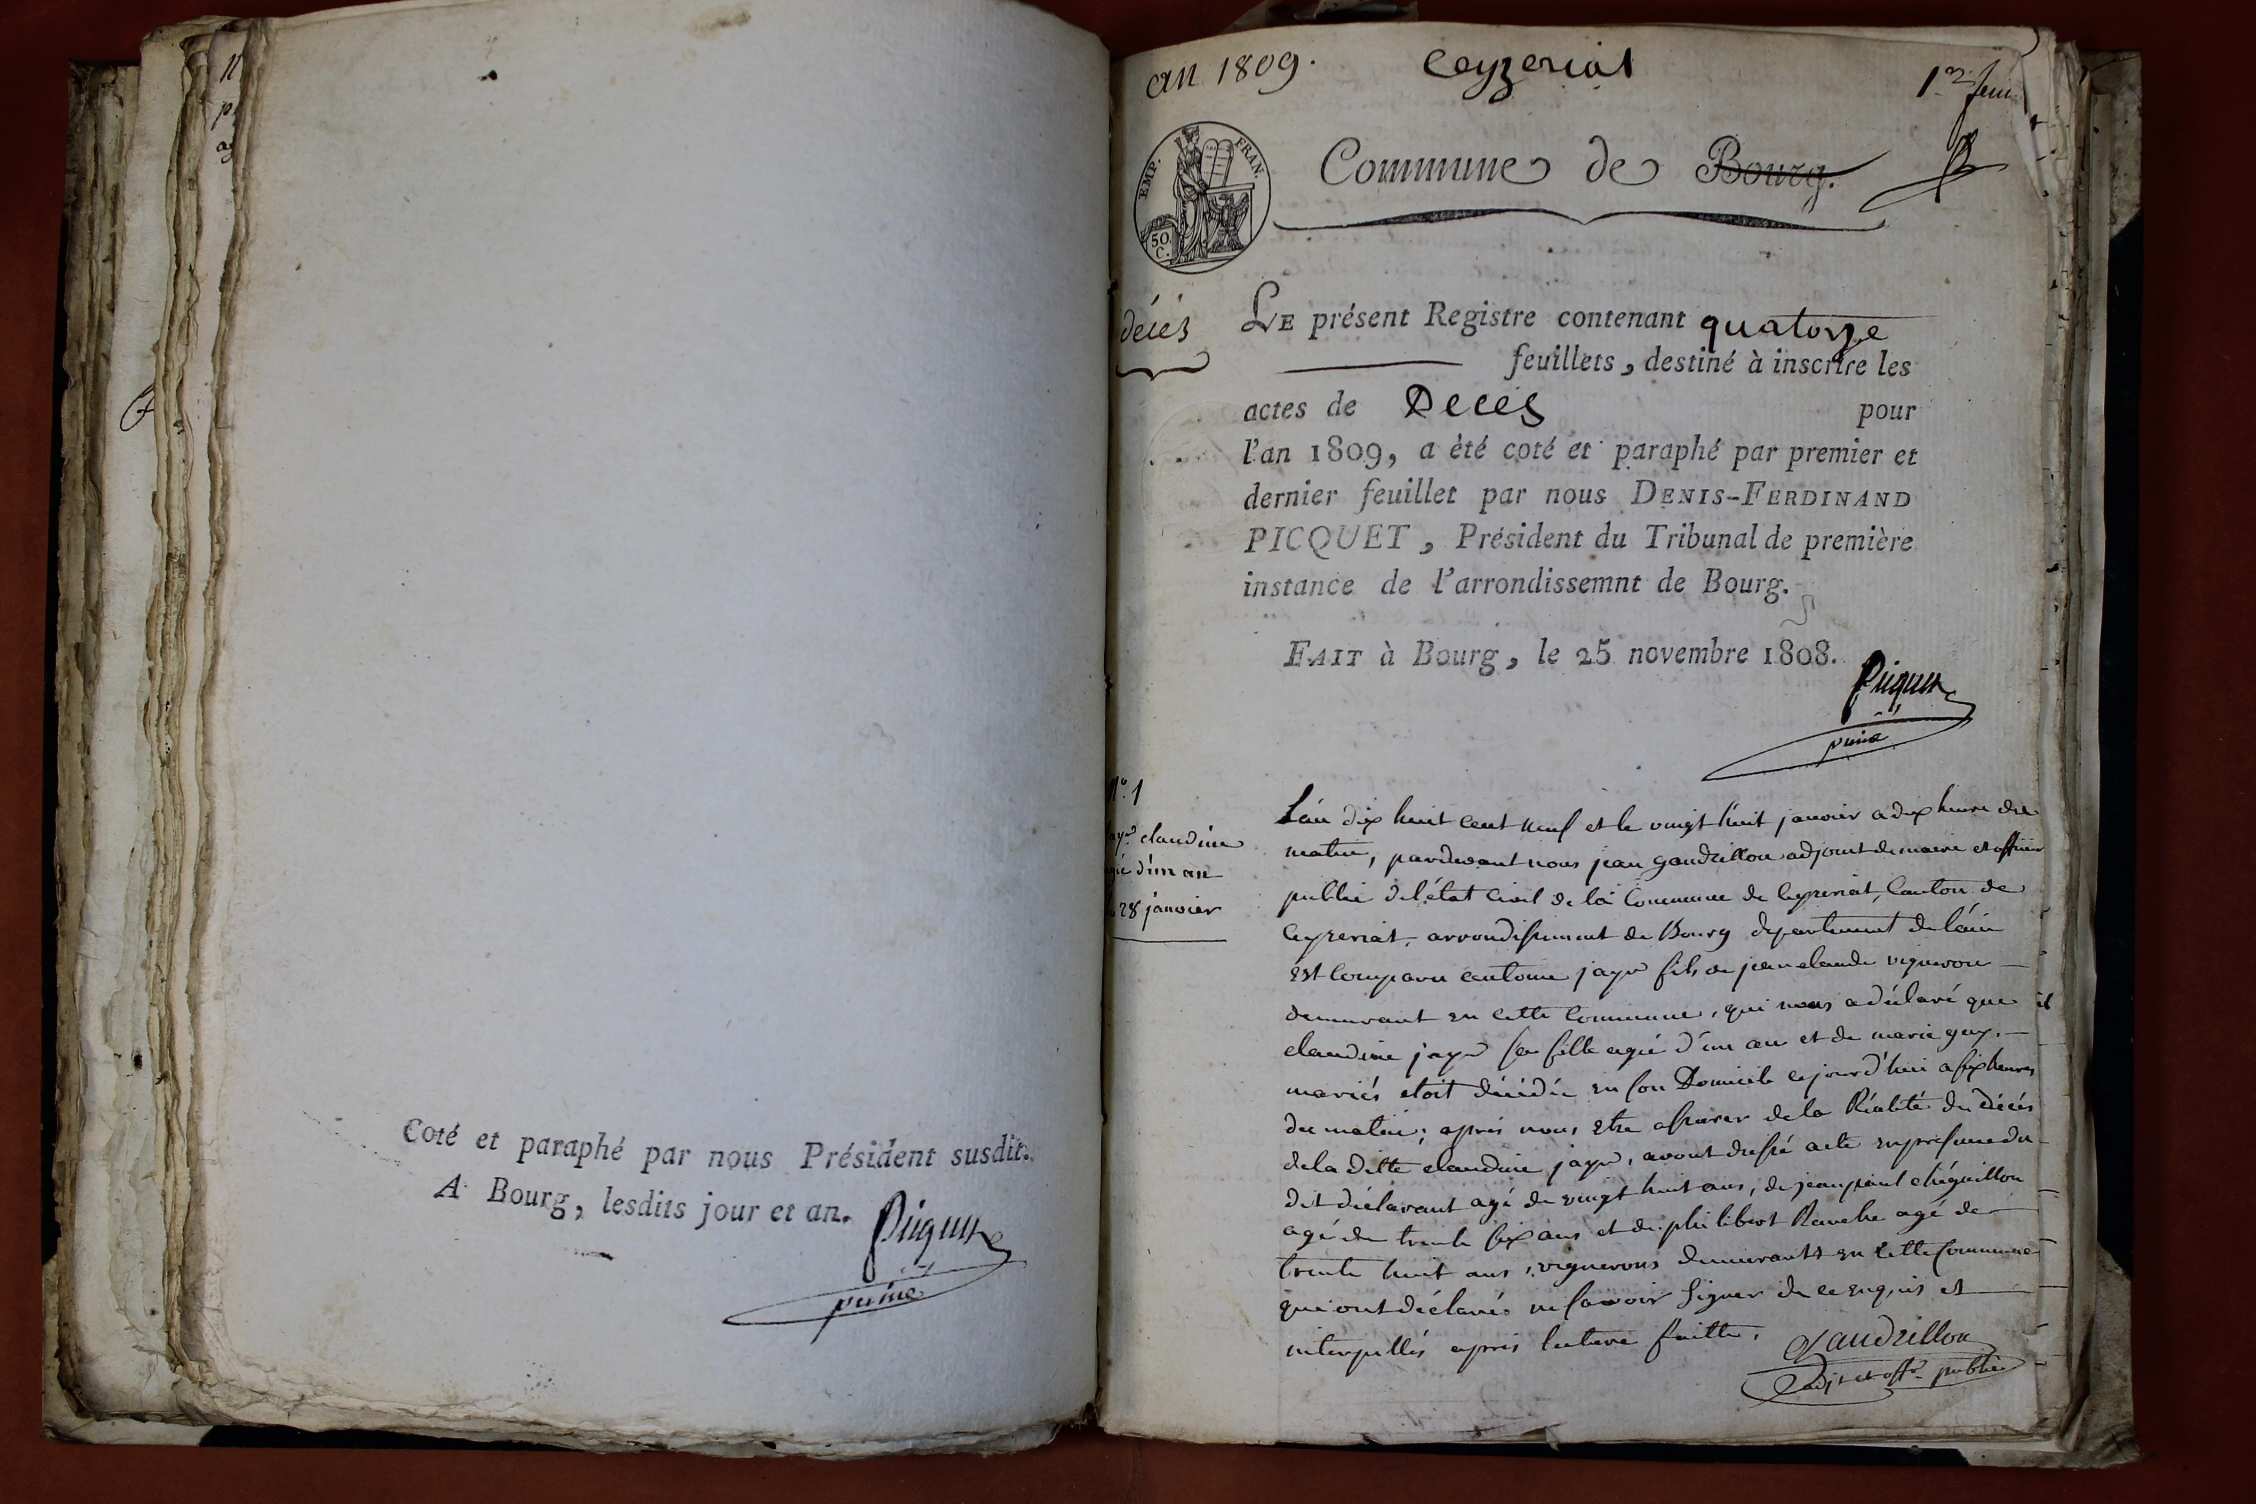 Coté et paraphé par nous Président susdit.
A Bourg, lesdits jour et an.
Picquet
an 1809. Ceyzeriat 1er feuil
EMP. FRAN.
50.
C.
Commune de Bourg.
décès
LE présent Registre contenant quatorze
feuillets, destiné à inscrire les
actes de Décès pour
l'an 1809, a èté coté et paraphé par premier et
dernier feuillet par nous DENIS-FERDINAND
PICQUET, Président du Tribunal de première
instance de l'arrondissemnt de Bourg.
FAIT à Bourg, le 25 novembre 1808.
Picquet
N° 1
claudine
d'un an
28 janvier
L'an dix huit cent neuf et le vingt huit janvier a dix heure du
matin, pardevant nous jean gaudrillon adjoint de maire et officier
public de l'état civil de la Commune de Ceyzeriat, Canton de
Ceyzeriat, arrondissement de Bourg departement de l'ain
est comparu antoine jayr fils de jean claude vigneron
demeurant en cette Commune, qui nous a déclaré que
claudine jayr sa fille agée d'un an et de marie guy,
mariés etoit décédée en son Domicile cejourd'hui a six heures
du matin; après nous etre assurer de la Réalité du décès
de la ditte claudine jayr, avont dressé acte en presence du
dit déclarant agé de vingt huit ans, de jean chéquillon
agé de trente six ans et de philibert Ravche agé de
trente huit ans, vignerons demeurants en cette Commune
qui ont déclarés ne savoir signer de ce enquis et
interpellés après lecture faitte.
Gaudrillon
adjt et offr public